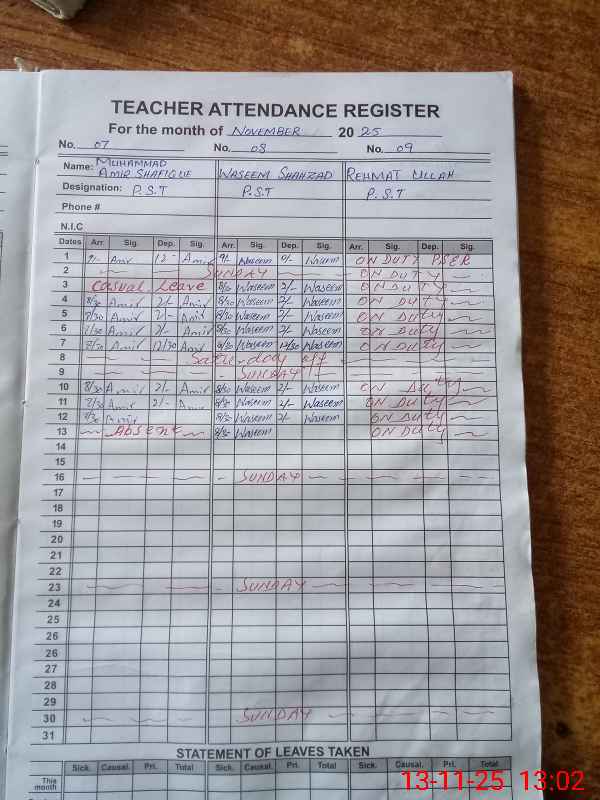 TEACHER ATTENDANCE REGISTER
For the month of NOVEMBER 20 25
No. 07 No. 08 No. 09
Name: MUHAMMAD AMIR SHAFIQUE WASEEM SHAHZAD REHMAT ULLAH
Designation: P.S.T P.S.T P.S.T
Phone #
N.I.C
Dates Arr. Sig. Dep. Sig. Arr. Sig. Dep. Sig. Arr. Sig. Dep. Sig.
1 9/- Amir 12- Amir 9/- Waseem Waseem ON DUTY PSER
2 SUNDAY ON DUTY
3 Casual Leave 8/30 Waseem 2/- Waseem ON DUTY
4 8/30 Amir 2/- Amir 8/30 Waseem 2/- Waseem ON DUTY
5 8/30 Amir 2/- Amir 8/30 Waseem 2/- Waseem ON DUTY
6 8/30 Amir 2/- Amir 8/30 Waseem 2/- Waseem ON DUTY
7 8/30 Amir 12/30 Amir 8/30 Waseem 12/30 Waseem ON DUTY
8 off
9 SUNDAY
10 8/30 Amir 2/- Amir 8/30 Waseem 2/- Waseem ON DUTY
11 8/30 Amir 2/- Amir 8/30 Waseem 2/- Waseem ON DUTY
12 8/30 Amir 8/30 Waseem 2/- Waseem ON DUTY
13 Absent 8/30 Waseem ON DUTY
14
15
16 SUNDAY
17
18
19
20
21
22
23 SUNDAY
24
25
26
26
27
28
29
30 SUNDAY
31
STATEMENT OF LEAVES TAKEN
Sick. Causal. Pri. Total Sick. Causal. Pri. Total Sick. Causal. Pri. Total
This month
13-11-25 13:02